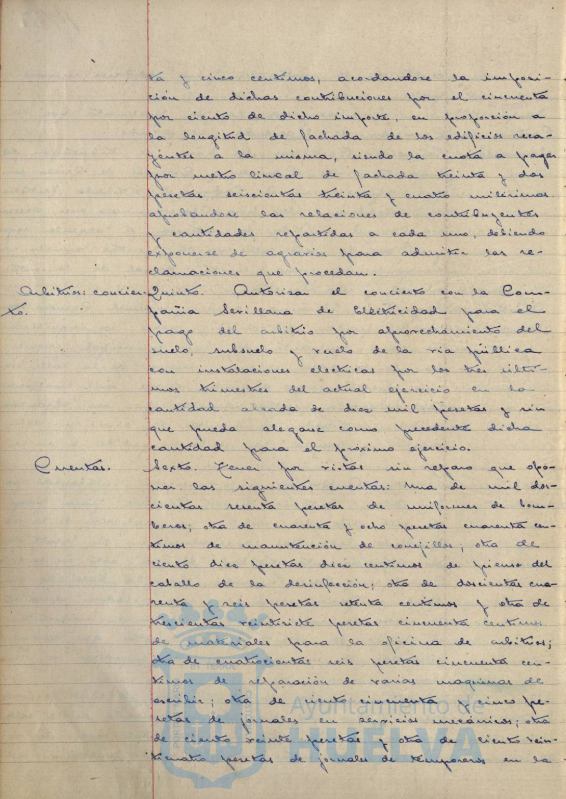 ta y cinco centimos, acordandose la imposi-
ción de dichas contribuciones por el cincuenta
por ciento de dicho importe, en proporción a
la longitud de fachada de los edificios reca-
yentes a la misma, siendo la cuota a pagar
por metro lineal de fachada treinta y dos
pesetas seiscientas treinta y cuatro milésimas
aprobandose las relaciones de contribuyentes
y cantidades repartidas a cada uno, debiendo
exponerse de agravios para admitir las re-
clamaciones que procedan.
Arbitrios: concier-
to.
Quinto. Autorizar el concierto con la Com-
pañia Sevillana de Electricidad para el
pago del arbitrio por aprovechamiento del
suelo, subsuelo y vuelo de la via pública
con instalaciones electricas por los tres ulti-
mos trimestres del actual ejercicio en la
cantidad alzada de diez mil pesetas y sin
que pueda alegarse como precedente dicha
cantidad para el proximo ejercicio.
Cuentas.
Sexto. Tener por vistas sin reparo que opo-
ner las siguientes cuentas: una de mil dos-
cientas sesenta pesetas de uniformes de bom-
beros; otra de cuarenta y ocho pesetas cuarenta cen-
timos de manutención de conejillos; otra de
ciento diez pesetas diez centimos de pienso del
caballo de la desinfección; otra de doscientas cua-
renta y seis pesetas setenta centimos y otra de
trescientas veintisiete pesetas cincuenta centimos
de materiales para la oficina de arbitrios;
otra de cuatrocientas seis pesetas cincuenta cen-
timos de reparación de varias maquinas de
escribir; otra de ciento cincuenta y cinco pe-
setas de jornales en servicios mecánicos; otra
de ciento veinte pesetas y otra de ciento vein-
ticuatro pesetas de jornales de temporeros en la
Ayuntamiento de
HUELVA